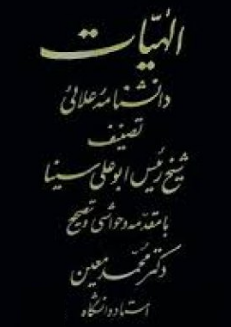 الهیّات
دانشنامهٔ علائی
تصنیف
شیخ رئیس ابوعلی سینا
با مقدمه و حواشی و تصحیح
دکتر محمّد معین
استاد دانشگاه